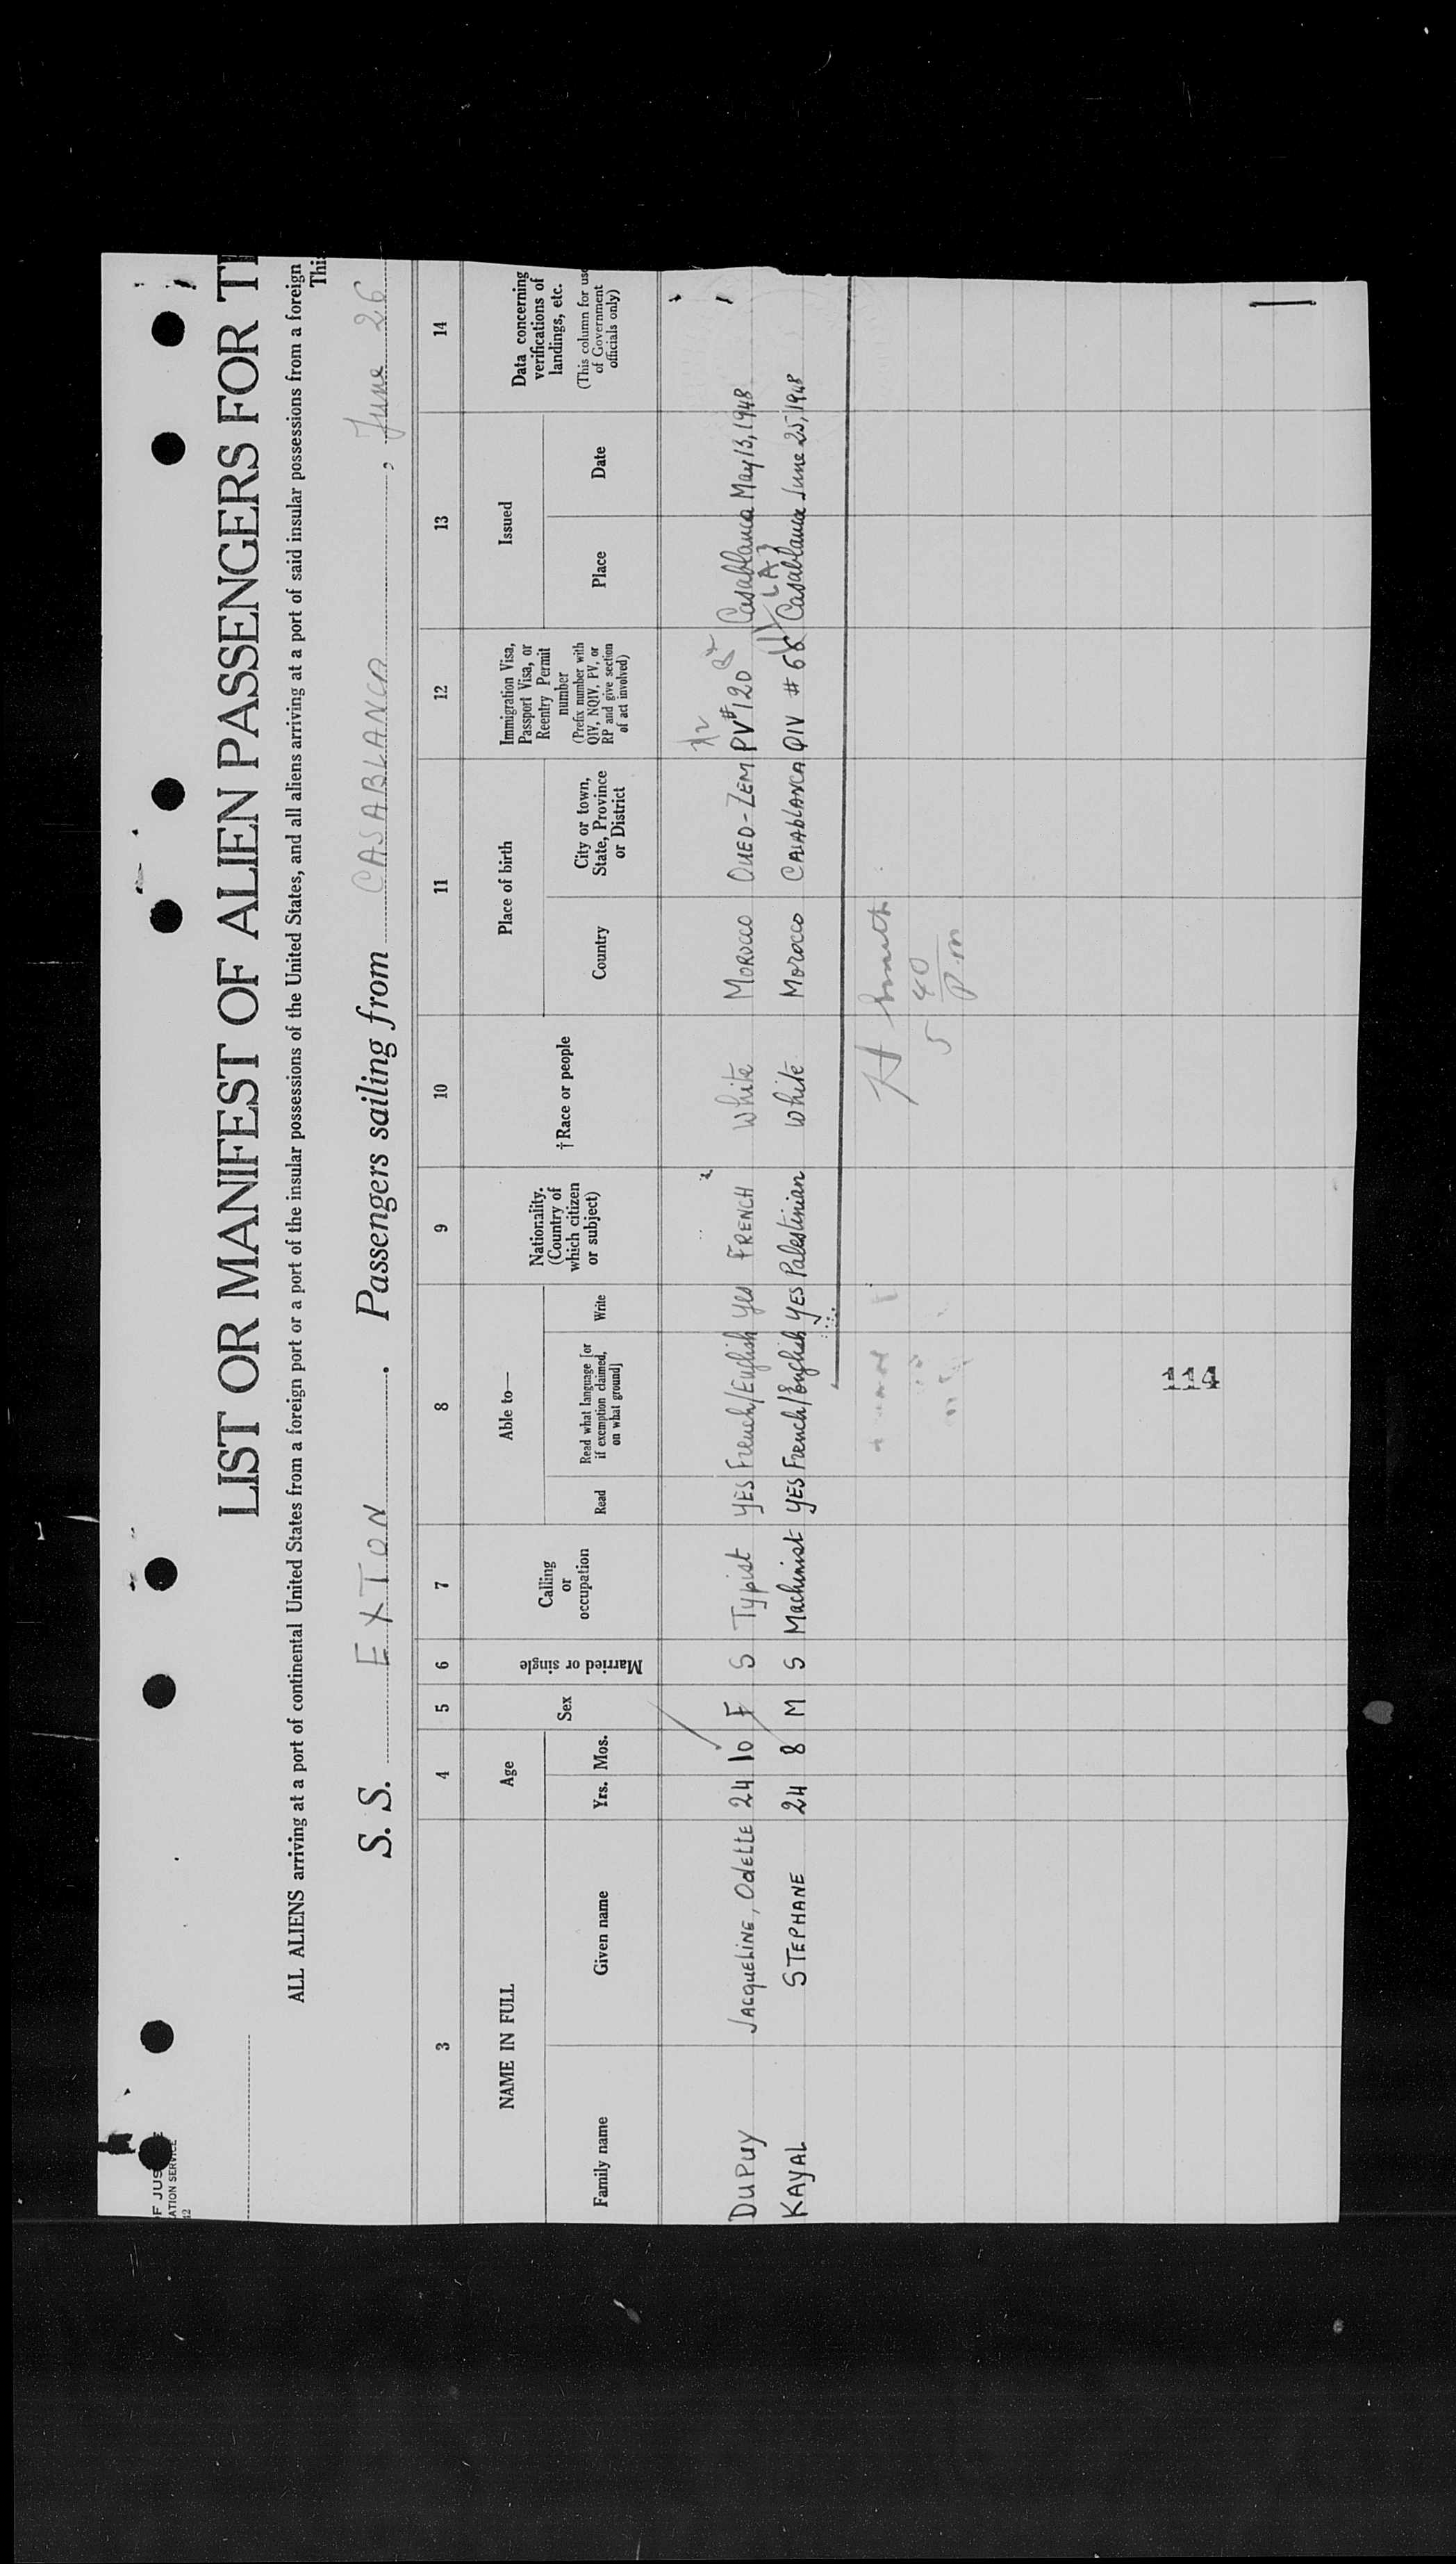 F JUS
ATION SERVICE
LIST OR MANIFEST OF ALIEN PASSENGERS FOR
ALL ALIENS arriving at a port of continental United States from a foreign port or a port of the insular possessions of the United States, and all aliens arriving at a port of said insular possessions from a foreign
Thi
S. S. EXTON. Passengers sailing from CASABLANCA, June 26
3 4 5 6 7 8 9 10 11 12 13 14
NAME IN FULL
Family name Given name
Age
Yrs. Mos.
Sex
Married or single
Calling
or
occupation
Able to—
Read
Read what language [or
if exemption claimed,
on what ground]
Write
Nationality.
(Country of
which citizen
or subject)
†Race or people
Place of birth
Country
City or town,
State, Province
or District
Immigration Visa,
Passport Visa, or
Reentry Permit
number
(Prefix number with
QIV, NQIV, PV, or
RP and give section
of act involved)
Issued
Place Date
Data concerning
verifications of
landings, etc.
(This column for use
of Government
officials only)
DUPUY JACQUELINE, OdELLE 24 10 F S Typist YES French/English Yes FRENCH White MOROCCO OUED-ZEM PV#120 Casablanca May 13, 1948
KAYAL STEPHANE 24 8 M S Machinist YES French/English YES Palestinian White MOROCCO CASABLANCA QIV # 68 Casablanca June 25, 1948
5 40
P.M